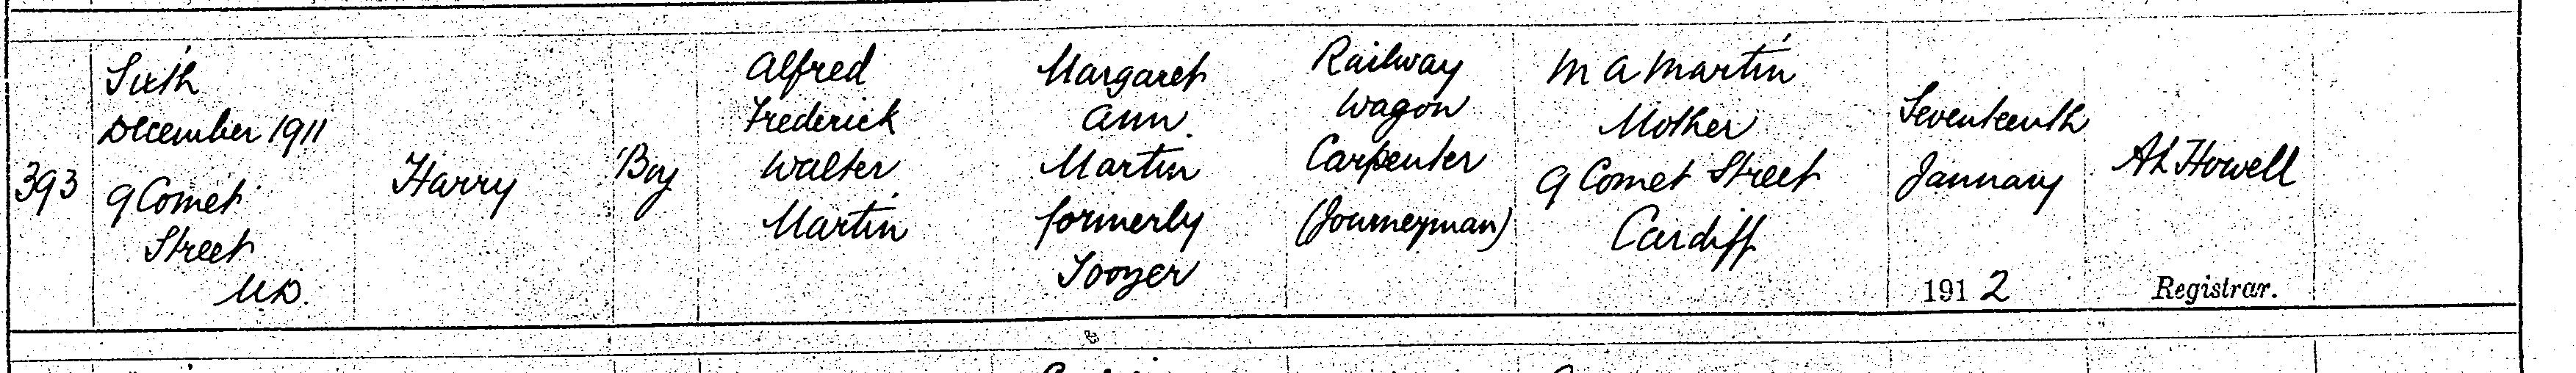 393
Sixth
December 1911
9 Comet
Street
U.D.
Harry
Boy
Alfred
Frederick
Walter
Martin
Margaret
Ann
Martin
formerly
Tooyer
Railway
Wagon
Carpenter
(Journeyman)
M A Martin
Mother
9 Comet Street
Cardiff
Seventeenth
January
1912
A L Howell
Registrar.